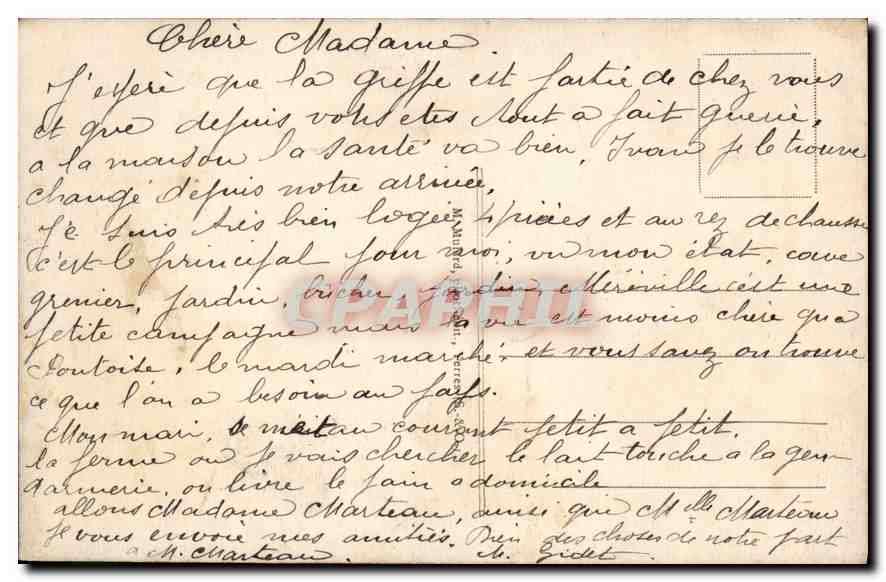 Chère Madame.
J'espère que la griffe est partie de chez vous
et que depuis vous etes tout a fait guerie,
a la maison la santé va bien, Ivan je le trouve
changé depuis notre arrivée,
Je suis très bien logée 4 pièces et au rez de chaussé
c'est le principal pour moi, vu mon état, cave
grenier, jardin, bucher, jardin, Méréville c'est une
petite campagne mais la vie est moins chère qu'a
Pontoise, le mardi marché et vous savez on trouve
ce que l'on a besoin au pays.
Mon mari, se met au courant petit a petit,
la ferme ou je vais chercher le lait touche a la gen
darmerie, on livre le pain a domicile
allons Madame Marteau, ainsi que Melle Marteau
je vous envoie mes amitiés. Bien des choses de notre part
a M. Marteau. M. Gidet.
CPAPHIL